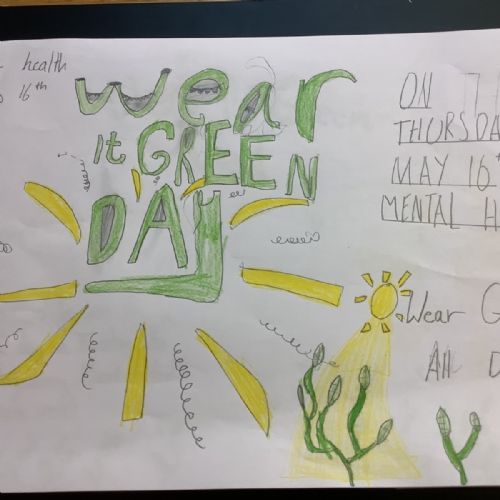 health
16th
wear
It GREEN
DAY
ON
THURSDA
MAY 16
MENTAL H
Wear G
All D